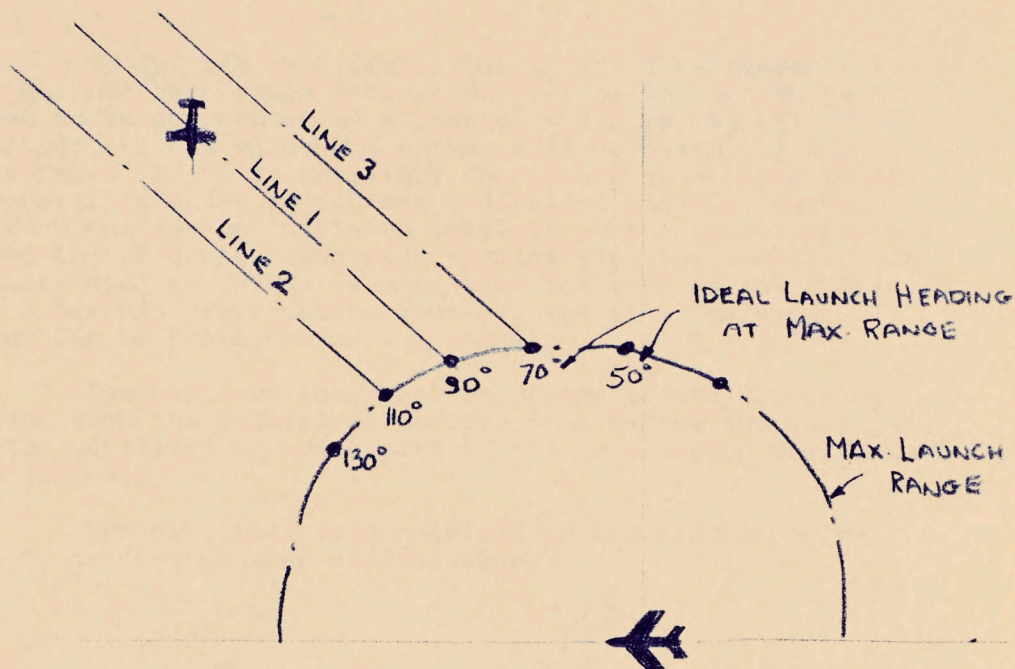 LINE 3
LINE 1
LINE 2
IDEAL LAUNCH HEADING
AT MAX. RANGE
90°
70°
50°
110°
130°
MAX. LAUNCH
RANGE